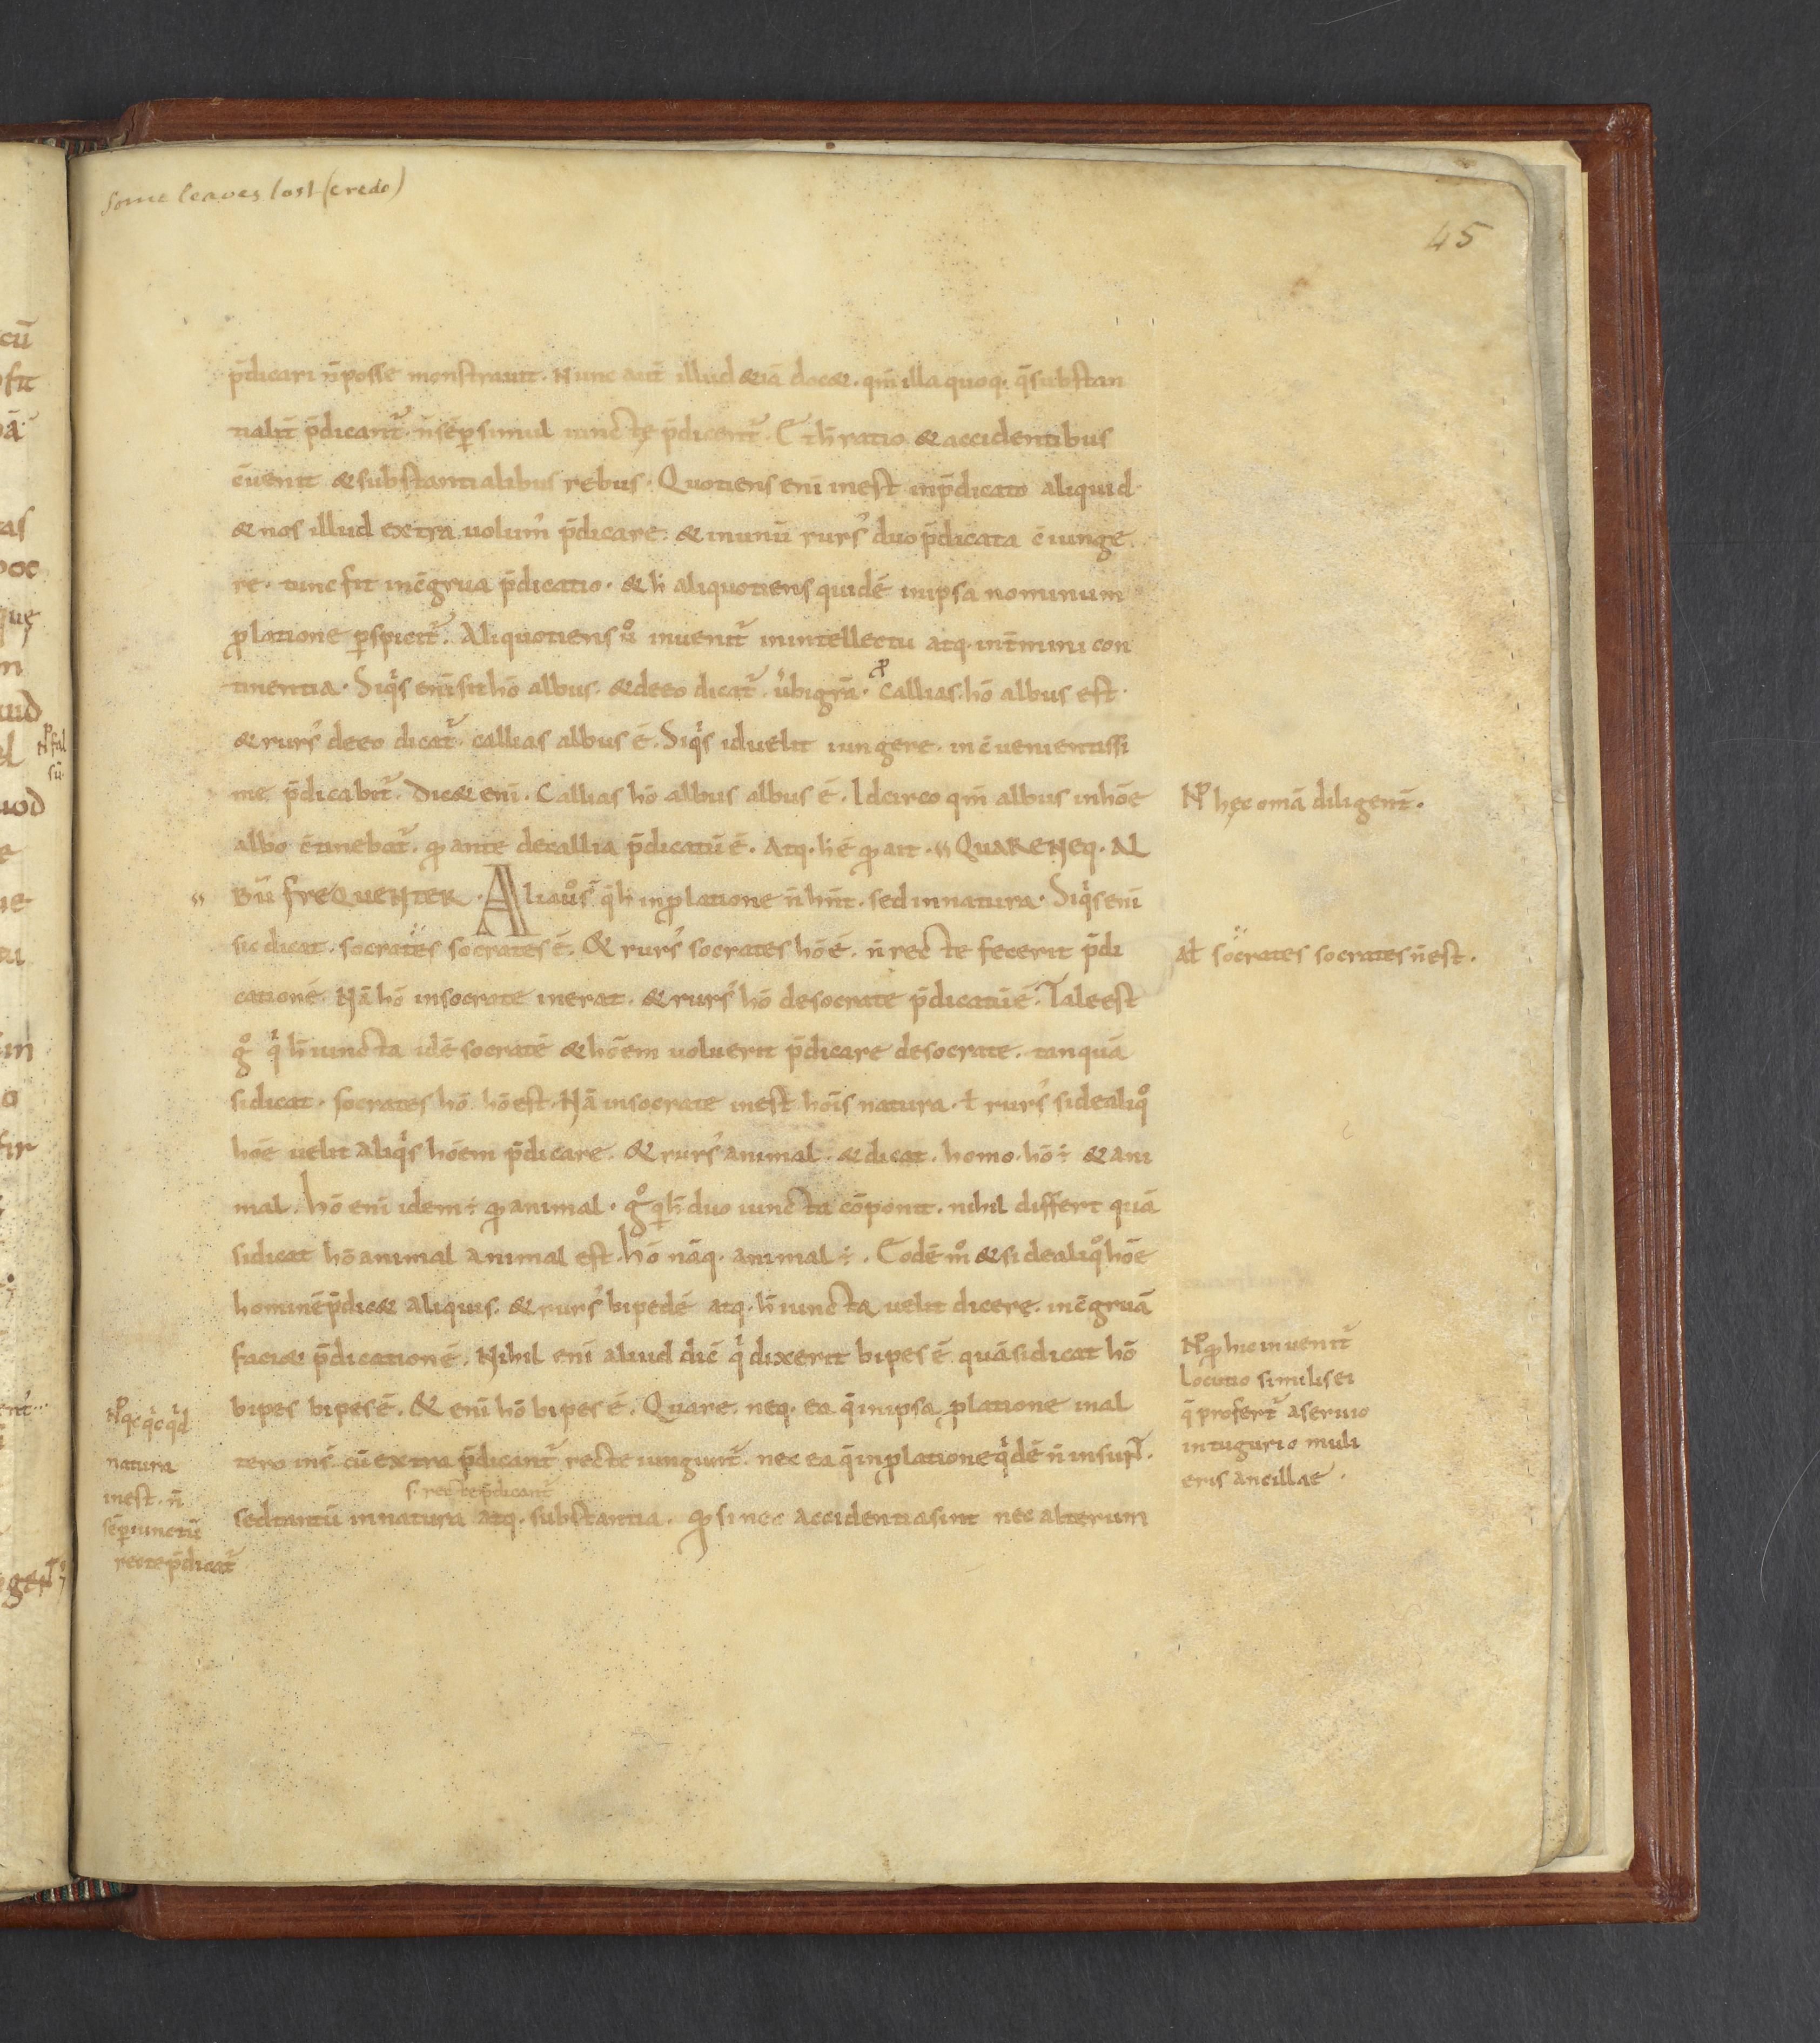 some leaves lost (credo)
45
p̄dicari n̄ posse monstrauit. Nunc aut̄ illud &iā doc&. qm̄ illa quoq. q̄ substan
tialit̄ p̄dicant᷑. n̄ sēp simul iuncte p̄dicent᷑. Et h̄ ratio & accidentibus
c̄uenit & substantialibus rebus. Quotiens eni inest inp̄dicato aliquid
& nos illud extra uolum' p̄dicare. & inunū rurs' duo p̄dicata c̄iunge
re. tunc fit inc̄grua p̄dicatio. & h̄ aliquotiens quidē inipsa nominum
ꝓlatione ꝑspicit᷑. Aliquotiens uº inuenit᷑ inintellectu atq. int̄mini con
tinentia. Siqͥs eni sit hō albus. & deeo dicat᷑. ūbi grā. Callias hō albus est.
& rurs' deeo dicat᷑. callias albus ē. Siqͥs id uelit iungere. inc̄uenientissi
me p̄dicabit᷑. Dic& eni. Callias hō albus albus ē. Idcirco qm̄ albus inhōe
albo c̄tinebat᷑. qđ ante decallia p̄dicatū ē. Atq. h̄ ē qđ ait. QUARE NEQ. AL
BŪ FREQUENTER. Alia uºs q̄ h̄ inꝓlatione n̄ hn̄t. sed innatura. Siqͥs eni
sic dicat. socrates socrates ē. & rurs' socrates hō ē. n̄ recte fecerit p̄di
cationē. Nā hō insocrate inerat. & rurs' hō desocrate p̄dicatū ē. Tale est
gº qͥ h̄ iuncta idē socratē & hōem uoluerit p̄dicare desocrate. tanquā
si dicat. socrates hō hō est. Nā insocrate inest hōis natura. ł rurs' si dealiqº
hōe uelit aliqͥs hōem p̄dicare. & rurs' animal. & dicat. homo. hō ÷ & ani
mal. hō eni idem ÷ qđ animal. gº qͥ h̄ duo iuncta cōponit. nihil differt quā
si dicat hō animal animal est. hō nāq. animal ÷. Eodē mº & si dealiqº hōe
hominē p̄dic& aliquis. & rurs' bipedē atq. h̄ iuncta uelit dicere. inc̄gruā
faci& p̄dicationē. Nihil eni aliud dic̄ qͥ dixerit bipes ē. quā si dicat hō
bipes bipes ē. & eni hō bipes ē. Quare. neq. ea q̄ inipsa ꝓlatione inal
tero ins̄. cū extra p̄dicant᷑ recte iungunt᷑. nec ea q̄ inꝓlatione qͥdē n̄ insunt.
s. recte p̄dicant᷑
sed tantū innatura atq. substantia. qđ si nec accidentia sint nec alterum
N̄ hęc omā diligent̄.
Ał socrates socrates n̄ est.
N̄ qđ hic inuenit᷑
locutio similis ei
q̄ profert᷑ a seruio
in tugurio muli
eris ancillae.
natura
inest. n̄
sēp iunctū
recte p̄dicat᷑